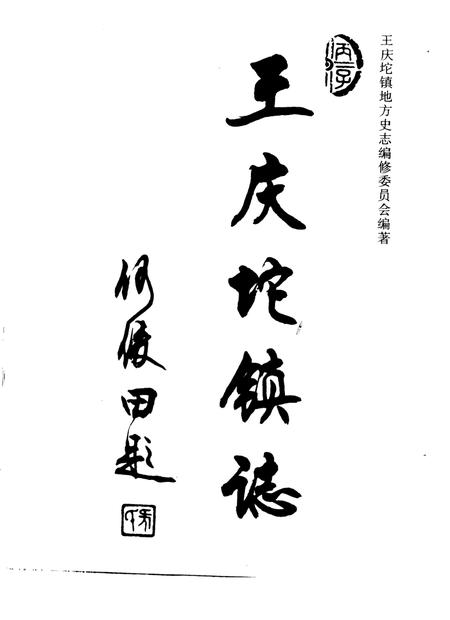 王庆坨镇地方史志编修委员会编著
丙子
王庆坨镇誌
何俊田题